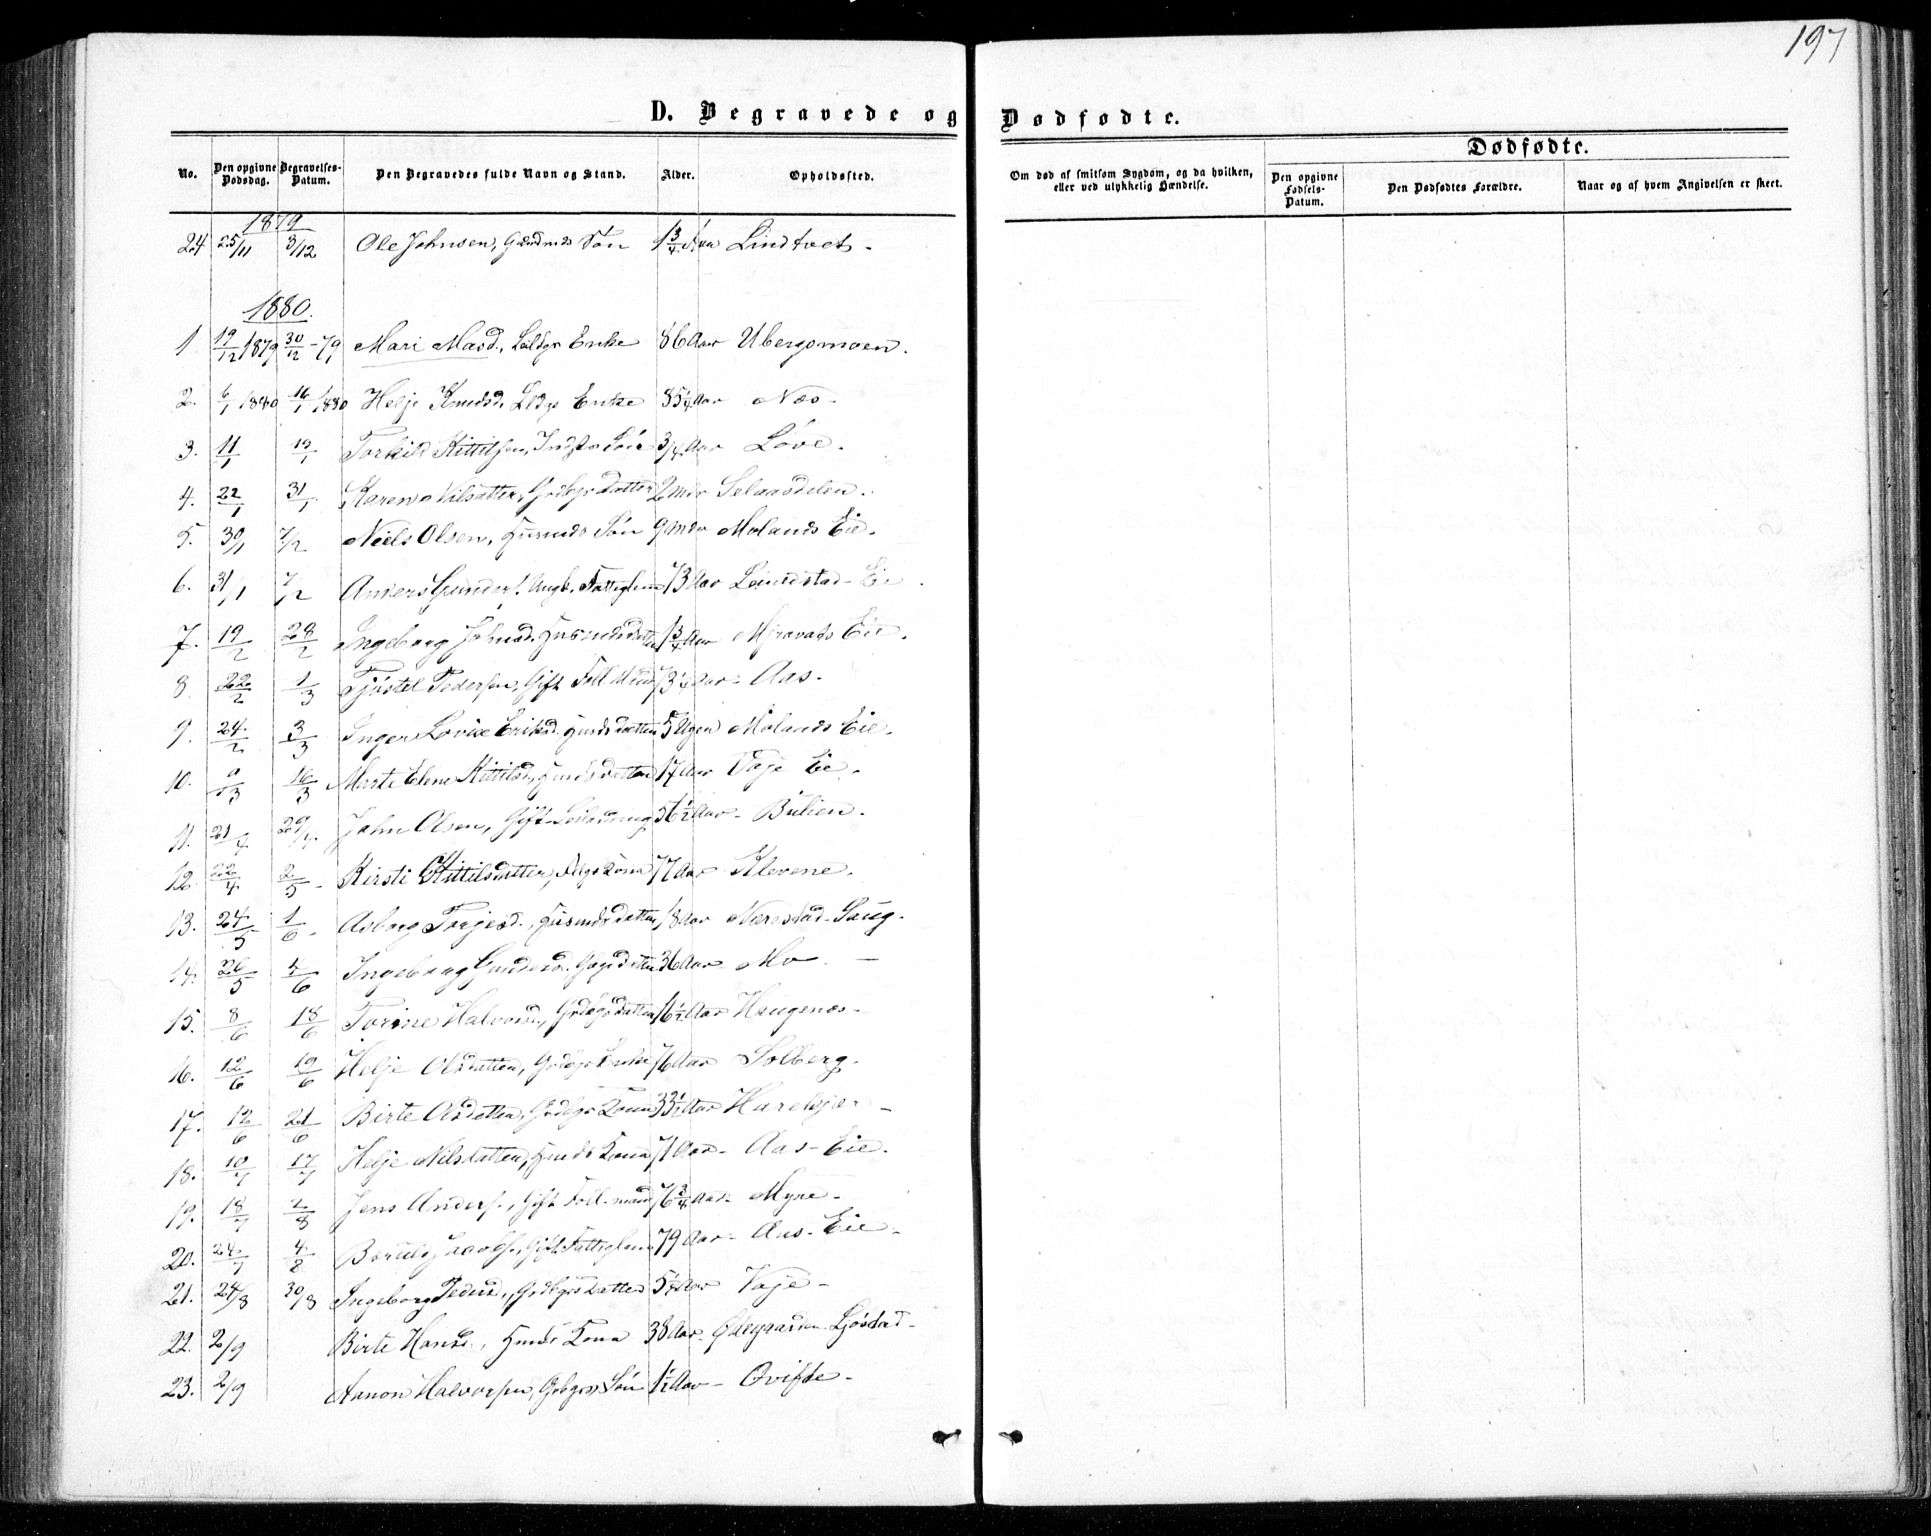 197
D. Begravede og Dødfødte.
Dødfødte.
No. Den opgivne Dødsdag. Begravelses-Datum. Den Begravedes fulde Navn og Stand. Alder. Opholdssted. Om død af smitsom Sygdom, og da hvilken, eller ved ulykkelig Hændelse. Den opgivne Fødsels-Datum. Den Dødfødtes Forældre. Naar og af hvem Angivelsen er skeet.
1879
24 25/11 3/12 Ole Johnsen, Søn 1 3/4 Aar Lindtvet -
1880.
1. 19/12 1879 30/12 - 79 Mari Madsd., Enke 86 Aar Ubergsmoen.
2. 6/1 1880 16/1 1880 Helje Knudsd. Enke 85 1/4 Aar Næs -
3. 11/1 19/1 Torkild Kittilsen, Indstes Søn 3/4 Aar Løve.
4. 22/1 31/1 Karen Nilsdatter, Grdbgrs Datter 2 mdr Selaasdalen.
5. 30/1 7/2 Niels Olsen, Husmds Søn 9 mdr Molands Eie.
6. 31/1 7/2 Anders Gunders. Ungk. Fattiglem 73 Aar Eie.
7. 19/2 28/2 Ingeborg Johnsd. Husmdsdatter 1 3/4 Aar Mjravats Eie.
8. 22/2 1/3 Tjøstel Pedersen, Gift Foll.Mand 73 1/4 Aar - Aas.
9. 24/2 3/3 Inger Lovise Eriksd. Husdsdatter 5 Uger Molands Eie.
10. 9/3 16/3 Marte Elene Kittilsd., Husdsdatter 17 Aar Vaje Eie.
11. 21/4 29/4. John Olsen, Gift 56 1/2 Aar - Bulien.
12. 22/4 2/5 - Kirsti Kittilsdatter, Kona 77 Aar - Klevene.
13. 24/5 1/6 - Asborg Torjesd., Husmdsdatter 18 Aar Nærestad - Saug -
14. 26/5 4/6 Ingeborg Gundersd. 36 Aar - Mo. -
15. 8/6 18/6 Torine Halvorsd., Grdbgrsdatter 16 1/2 Aar Haugenæs -
16. 12/6 19/6 Helje Olsdatter, Grdbgrs Enke 76 Aar Solberg.
17. 12/6 21/6 Birte Grdbgrs Kona 33 1/2 Aar -
18. 10/7 17/7 Helje Nilsdatter, Husds Kona 71 Aar - Aas - Eie.
19. 18/7 2/8 Jens Anders., Gift Foll.mand 76 3/4 Aar - Myre -
20. 24/7 4/8 Gift Fattiglem 79 Aar - Aas - Eie -
21. 24/8 30/8 Ingeborg Pedersd., Grdbgrsdatter 5 1/4 Aar Vaje -
22. 2/9 Birte Hansd., Husds Kona 38 Aar - Ødegaarden Ljøstad -
23. 2/9 Aanon Halvorsen, Grdbgrs Søn 1 1/2 Aar - Ovifte -